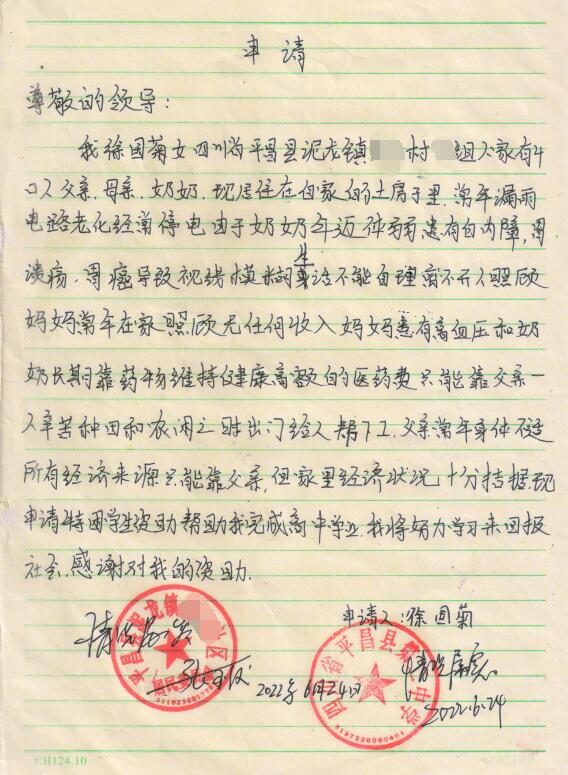 申请
尊敬的领导:
我徐国菊女四川省平昌县泥龙镇 村 组人家有4
口人父亲.母亲.奶奶.现居住在自家的土房子里.常年漏雨
电路老化经常停电由于奶奶年迈体弱患有白内障,胃
溃疡.胃癌导致视线模糊生活不能自理离不开人照顾
妈妈常年在家照顾无任何收入妈妈患有高血压和奶
奶长期靠药物维持健康高额的医药费只能靠父亲一
人辛苦种田和农闲之时出门给人帮下工.父亲常年身体不适
所有经济来源只能靠父亲,但家里经济状况十分拮据.现
申请特困学生资助帮助我完成高中学业.我将努力学习来回报
社会.感谢对我的资助.
申请人:徐国菊
情况属实
2022年6月24日
情况属实
2022.6.24
平昌县泥龙镇 区
四川省平昌县第二中学
5137330000604
CH124.10